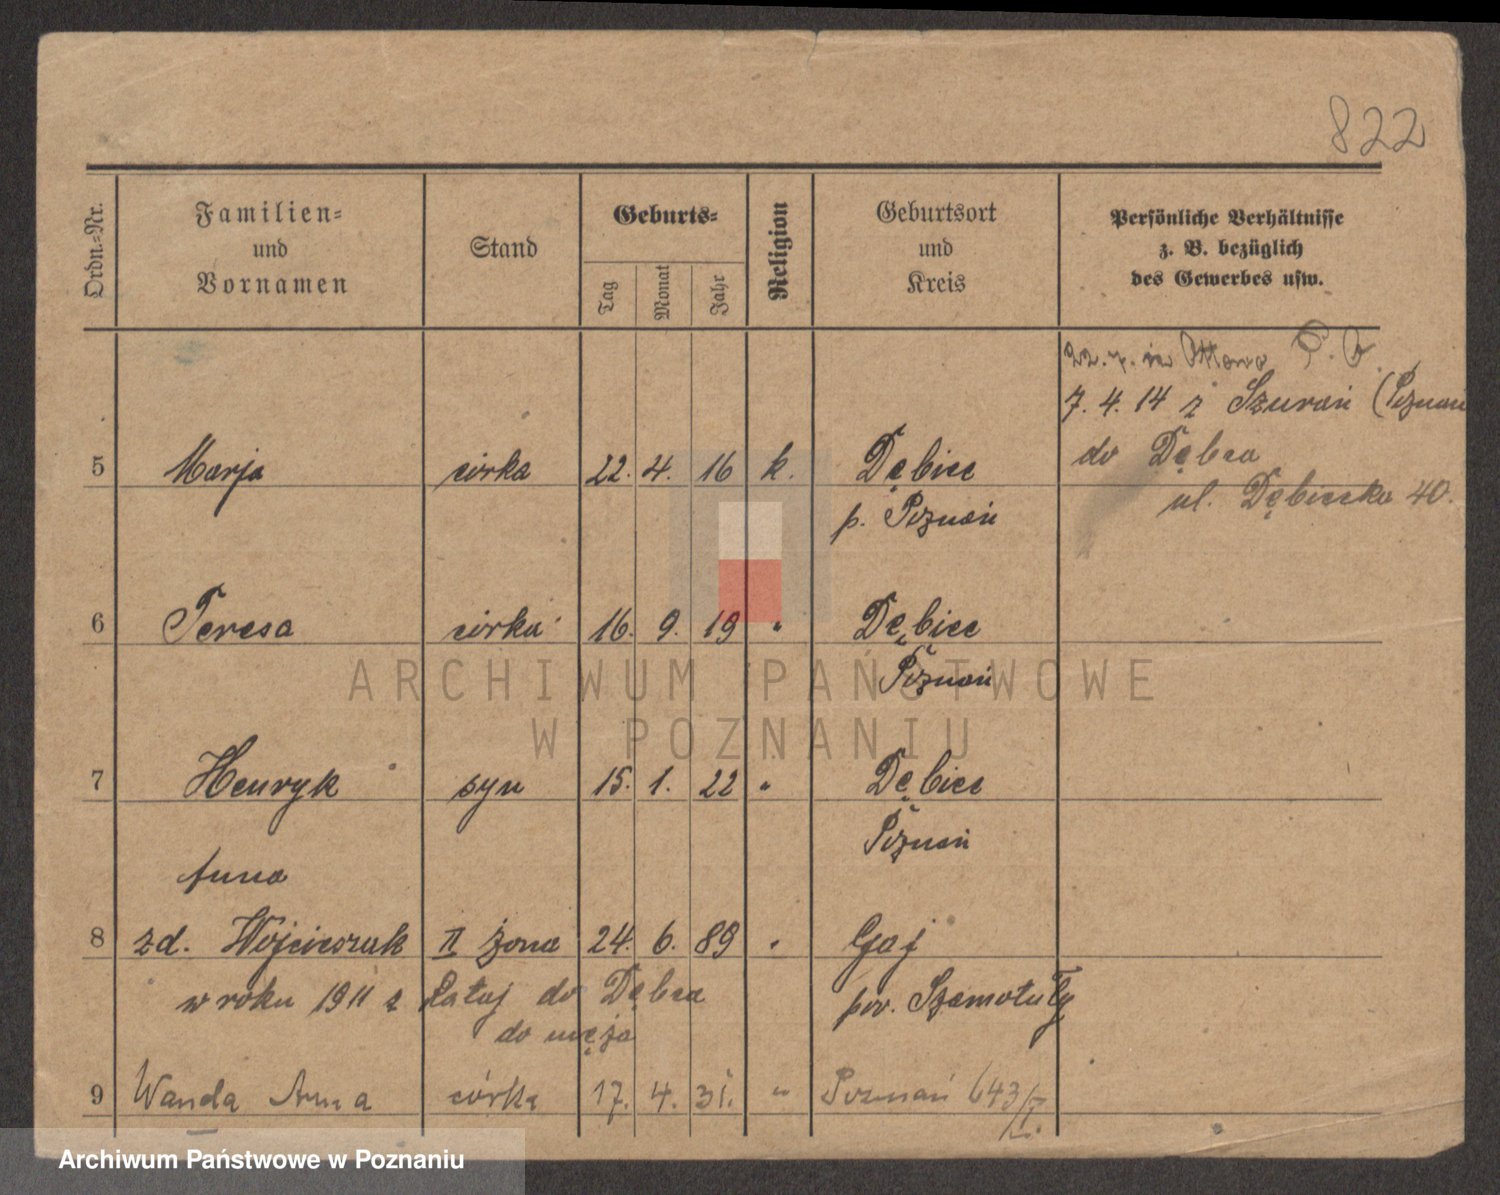 822
Ordn.=Nr.
Familien=
und
Vornamen
Stand
Geburts=
Tag
Monat
Jahr
Religion
Geburtsort
und
Kreis
Persönliche Verhältnisse
z. B. bezüglich
des Gewerbes usw.
22. 7.
7. 4. 14 z (Poznań
5 Marja córka 22. 4. 16 k. Dębiec do Dębca
p. Poznań ul. Dębiecka 40.
6 Teresa córka 16. 9. 19 " Dębiec
Poznań
7 Henryk syn 15. 1. 22 " Dębiec
Poznań
Anna
8 zd. Wojcieszak II żona 24. 6. 89 " Gaj
w roku 1911 z Rataj do Dębca pow. Szamotuły
do męża
9 Wanda Anna córka 17. 4. 31. " Poznań 643/I.
ARCHIWUM PAŃSTWOWE
W POZNANIU
Archiwum Państwowe w Poznaniu